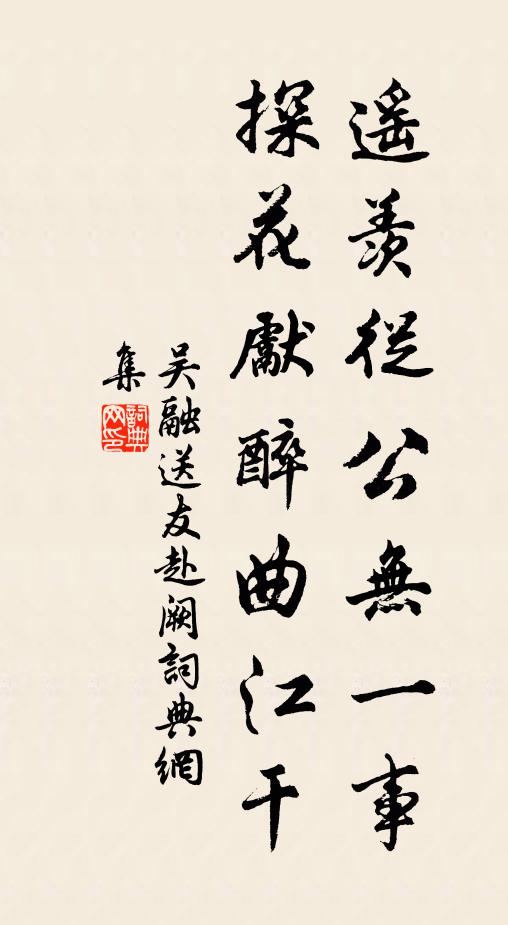 遙羨從公無一事
探花獻醉曲江干
吴融送友赴阙詞典網
集
詞典网印